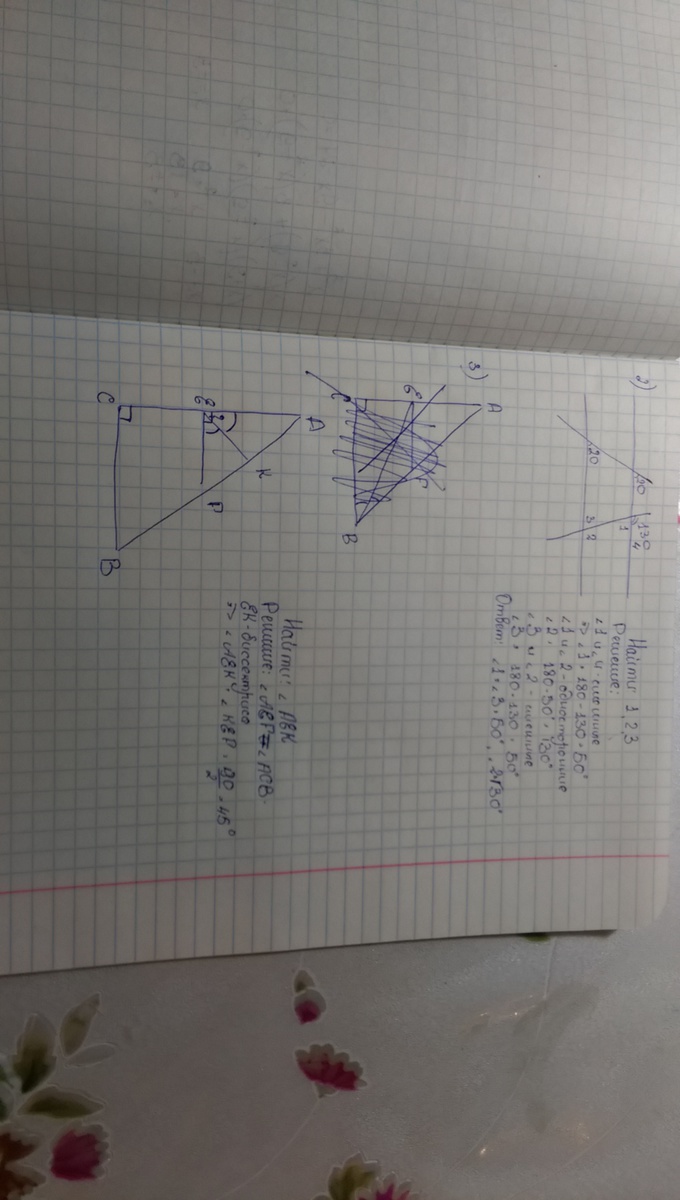 2)
20
20
130
1
4
3
2
Найти 1,2,3
Решение:
∠1 и 4 смежные
=> ∠1 = 180 - 130 = 50°
∠1 и ∠2 - односторонние
∠2 = 180 - 50° = 130°
∠3 и ∠2 - смежные
∠3 = 180 - 130 = 50°
Ответ: ∠1 и ∠3 = 50°, ∠2 = 130°
3)
A
E
C
B
A
E
K
P
C
B
Найти: ∠AEK
Решение: ∠AEP = ∠ACB
EK - биссектриса
=> ∠AEK = ∠KEP = 90/2 = 45°